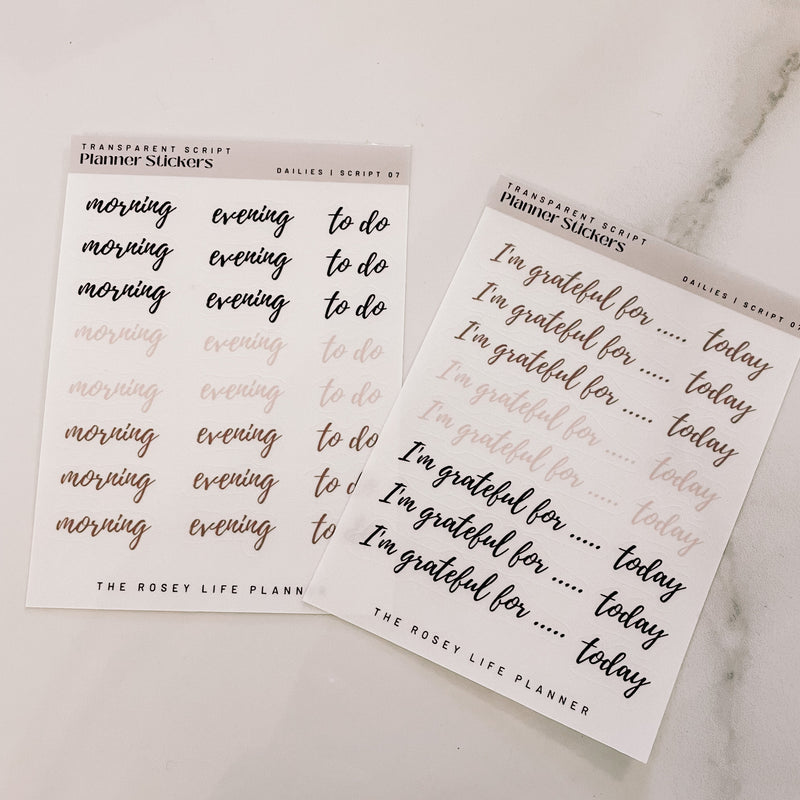 TRANSPARENT SCRIPT
Planner Stickers
DAILIES | SCRIPT 07
morning evening to do
morning evening to do
morning evening to do
morning evening to do
morning evening to do
morning evening to do
morning evening to d
morning evening to
THE ROSEY LIFE PLANN
TRANSPARENT SCRIPT
Planner Stickers
DAILIES | SCRIPT 07
I'm grateful for ..... today
I'm grateful for ..... today
I'm grateful for ..... today
I'm grateful for ..... today
I'm grateful for ..... today
I'm grateful for ..... today
I'm grateful for ..... today
I'm grateful for ..... today
THE ROSEY LIFE PLANNER